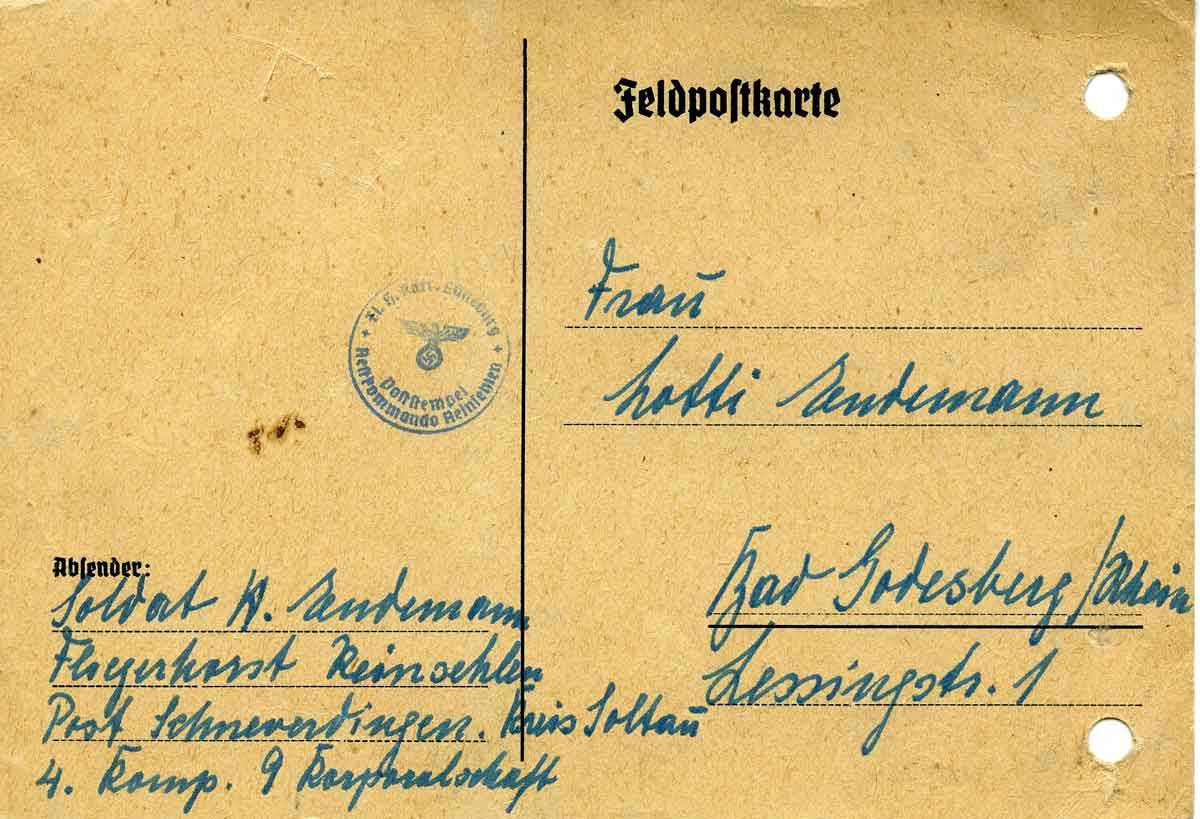 Feldpostkarte
Frau
Lotti Endemann
Bad Godesberg / Rhein
Lessingstr. 1
Fl. H. Lüneburg
Poststempel
Restkommando Reinsehlen
Absender:
Soldat Endemann
Fliegerhorst Reinsehlen
Post Schneverdingen. Kreis Soltau
4. Komp. 9 Korporalschaft